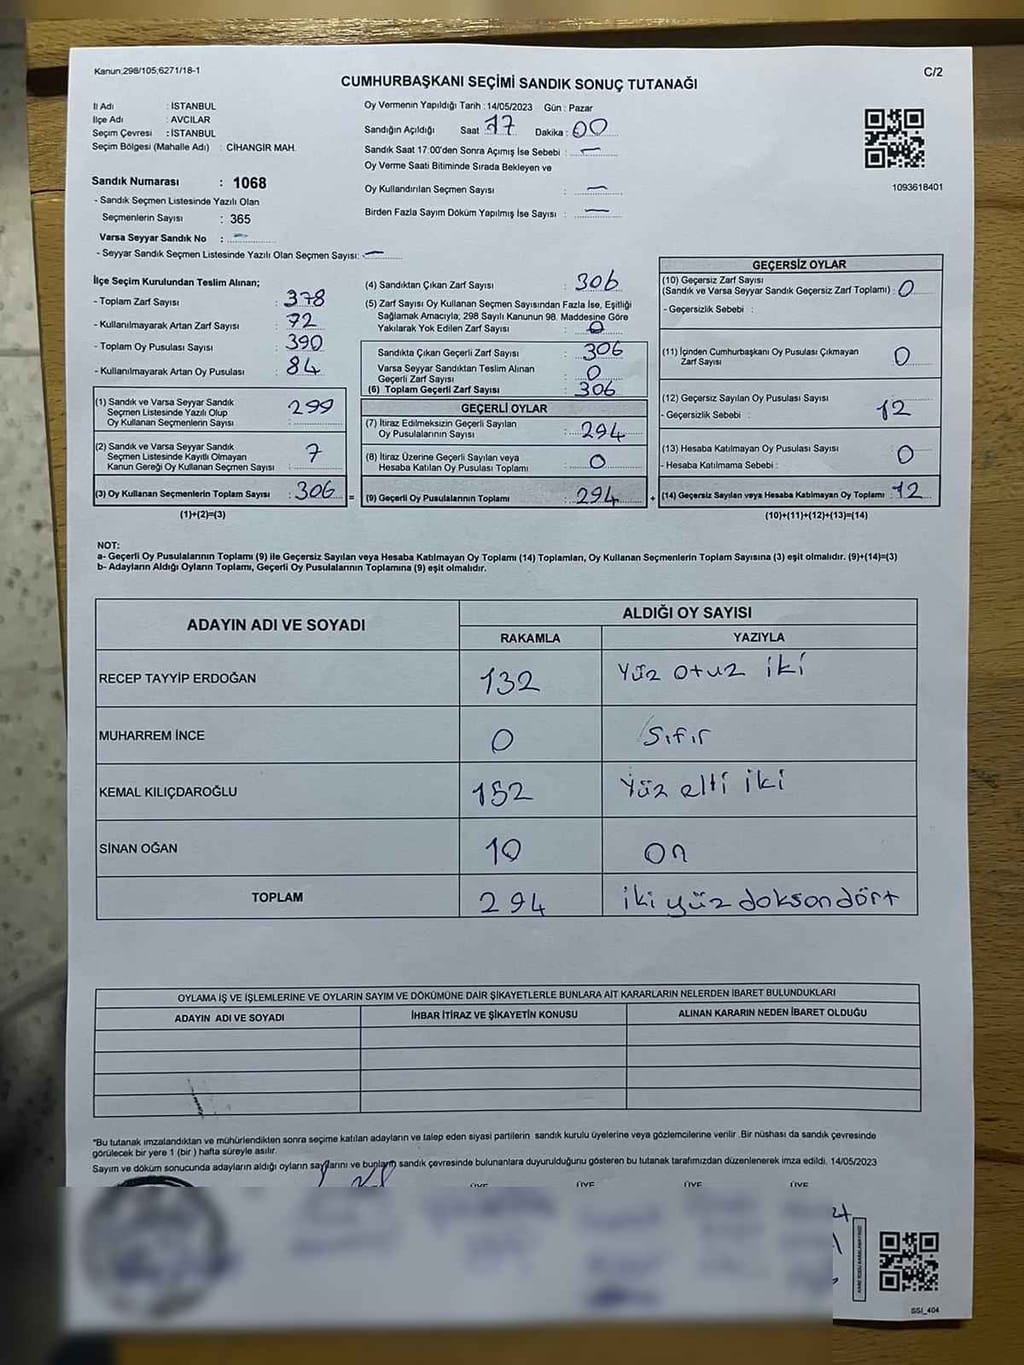 Kanun;298/105;6271/18-1
C/2
CUMHURBAŞKANI SEÇİMİ SANDIK SONUÇ TUTANAĞI
İl Adı : İSTANBUL
İlçe Adı : AVCILAR
Seçim Çevresi : İSTANBUL
Seçim Bölgesi (Mahalle Adı) : CİHANGİR MAH.
Sandık Numarası : 1068
- Sandık Seçmen Listesinde Yazılı Olan
Seçmenlerin Sayısı : 365
Varsa Seyyar Sandık No : -
- Seyyar Sandık Seçmen Listesinde Yazılı Olan Seçmen Sayısı: -
Oy Vermenin Yapıldığı Tarih : 14/05/2023 Gün : Pazar
Sandığın Açıldığı Saat : 17 Dakika : 00
Sandık Saat 17.00'den Sonra Açımış İse Sebebi : -
Oy Verme Saati Bitiminde Sırada Bekleyen ve
Oy Kullandırılan Seçmen Sayısı : -
Birden Fazla Sayım Döküm Yapılmış İse Sayısı : -
1093618401
İlçe Seçim Kurulundan Teslim Alınan;
- Toplam Zarf Sayısı : 378
- Kullanılmayarak Artan Zarf Sayısı : 72
- Toplam Oy Pusulası Sayısı : 390
- Kullanılmayarak Artan Oy Pusulası : 84
(1) Sandık ve Varsa Seyyar Sandık
Seçmen Listesinde Yazılı Olup
Oy Kullanan Seçmenlerin Sayısı : 299
(2) Sandık ve Varsa Seyyar Sandık
Seçmen Listesinde Kayıtlı Olmayan
Kanun Gereği Oy Kullanan Seçmen Sayısı : 7
(3) Oy Kullanan Seçmenlerin Toplam Sayısı : 306 =
(1)+(2)=(3)
(4) Sandıktan Çıkan Zarf Sayısı : 306
(5) Zarf Sayısı Oy Kullanan Seçmen Sayısından Fazla İse, Eşitliği
Sağlamak Amacıyla; 298 Sayılı Kanunun 98. Maddesine Göre
Yakılarak Yok Edilen Zarf Sayısı : 0
Sandıkta Çıkan Geçerli Zarf Sayısı : 306
Varsa Seyyar Sandıktan Teslim Alınan
Geçerli Zarf Sayısı : 0
(6) Toplam Geçerli Zarf Sayısı : 306
GEÇERLİ OYLAR
(7) İtiraz Edilmeksizin Geçerli Sayılan
Oy Pusulalarının Sayısı : 294
(8) İtiraz Üzerine Geçerli Sayılan veya
Hesaba Katılan Oy Pusulası Toplamı : 0
(9) Geçerli Oy Pusulalarının Toplamı : 294 +
GEÇERSİZ OYLAR
(10) Geçersiz Zarf Sayısı
(Sandık ve Varsa Seyyar Sandık Geçersiz Zarf Toplamı) : 0
- Geçersizlik Sebebi :
(11) İçinden Cumhurbaşkanı Oy Pusulası Çıkmayan
Zarf Sayısı : 0
(12) Geçersiz Sayılan Oy Pusulası Sayısı
- Geçersizlik Sebebi : 12
(13) Hesaba Katılmayan Oy Pusulası Sayısı : 0
- Hesaba Katılmama Sebebi :
(14) Geçersiz Sayılan veya Hesaba Katılmayan Oy Toplamı : 12
(10)+(11)+(12)+(13)=(14)
NOT:
a- Geçerli Oy Pusulalarının Toplamı (9) ile Geçersiz Sayılan veya Hesaba Katılmayan Oy Toplamı (14) Toplamları, Oy Kullanan Seçmenlerin Toplam Sayısına (3) eşit olmalıdır. (9)+(14)=(3)
b- Adayların Aldığı Oyların Toplamı, Geçerli Oy Pusulalarının Toplamına (9) eşit olmalıdır.
ADAYIN ADI VE SOYADI
ALDIĞI OY SAYISI
RAKAMLA YAZIYLA
RECEP TAYYİP ERDOĞAN 132 Yüz otuz iki
MUHARREM İNCE 0 Sıfır
KEMAL KILIÇDAROĞLU 152 Yüz elli iki
SİNAN OĞAN 10 On
TOPLAM 294 iki yüz doksan dört
OYLAMA İŞ VE İŞLEMLERİNE VE OYLARIN SAYIM VE DÖKÜMÜNE DAİR ŞİKAYETLERLE BUNLARA AİT KARARLARIN NELERDEN İBARET BULUNDUKLARI
ADAYIN ADI VE SOYADI İHBAR İTİRAZ VE ŞİKAYETİN KONUSU ALINAN KARARIN NEDEN İBARET OLDUĞU
"Bu tutanak imzalandıktan ve mühürlendikten sonra seçime katılan adayların ve talep eden siyasi partilerin sandık kurulu üyelerine veya gözlemcilerine verilir .Bir nüshası da sandık çevresinde
görülecek bir yere 1 (bir ) hafta süreyle asılır.
Sayım ve döküm sonucunda adayların aldığı oyların sayılarını ve bunların sandık çevresinde bulunanlara duyurulduğunu gösteren bu tutanak tarafımızdan düzenlenerek imza edildi. 14/05/2023
ÜYE ÜYE ÜYE ÜYE
SSI_404